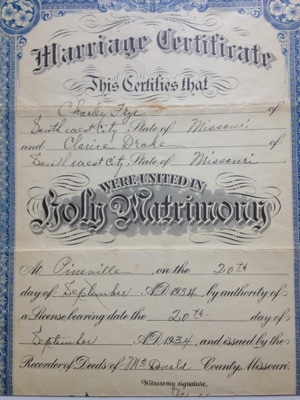 Marriage Certificate
This Certifies that
Charley Frye of
Southwest City State of Missouri
and Clarice Drake of
Southwest City, State of Missouri
WERE UNITED IN
Holy Matrimony
At Pineville on the 20th
day of September A.D. 1934, by authority of
a License bearing date the 20th day of
September A.D. 1934, and issued by the
Recorder of Deeds of McDonald County, Missouri.
Witness my signature,